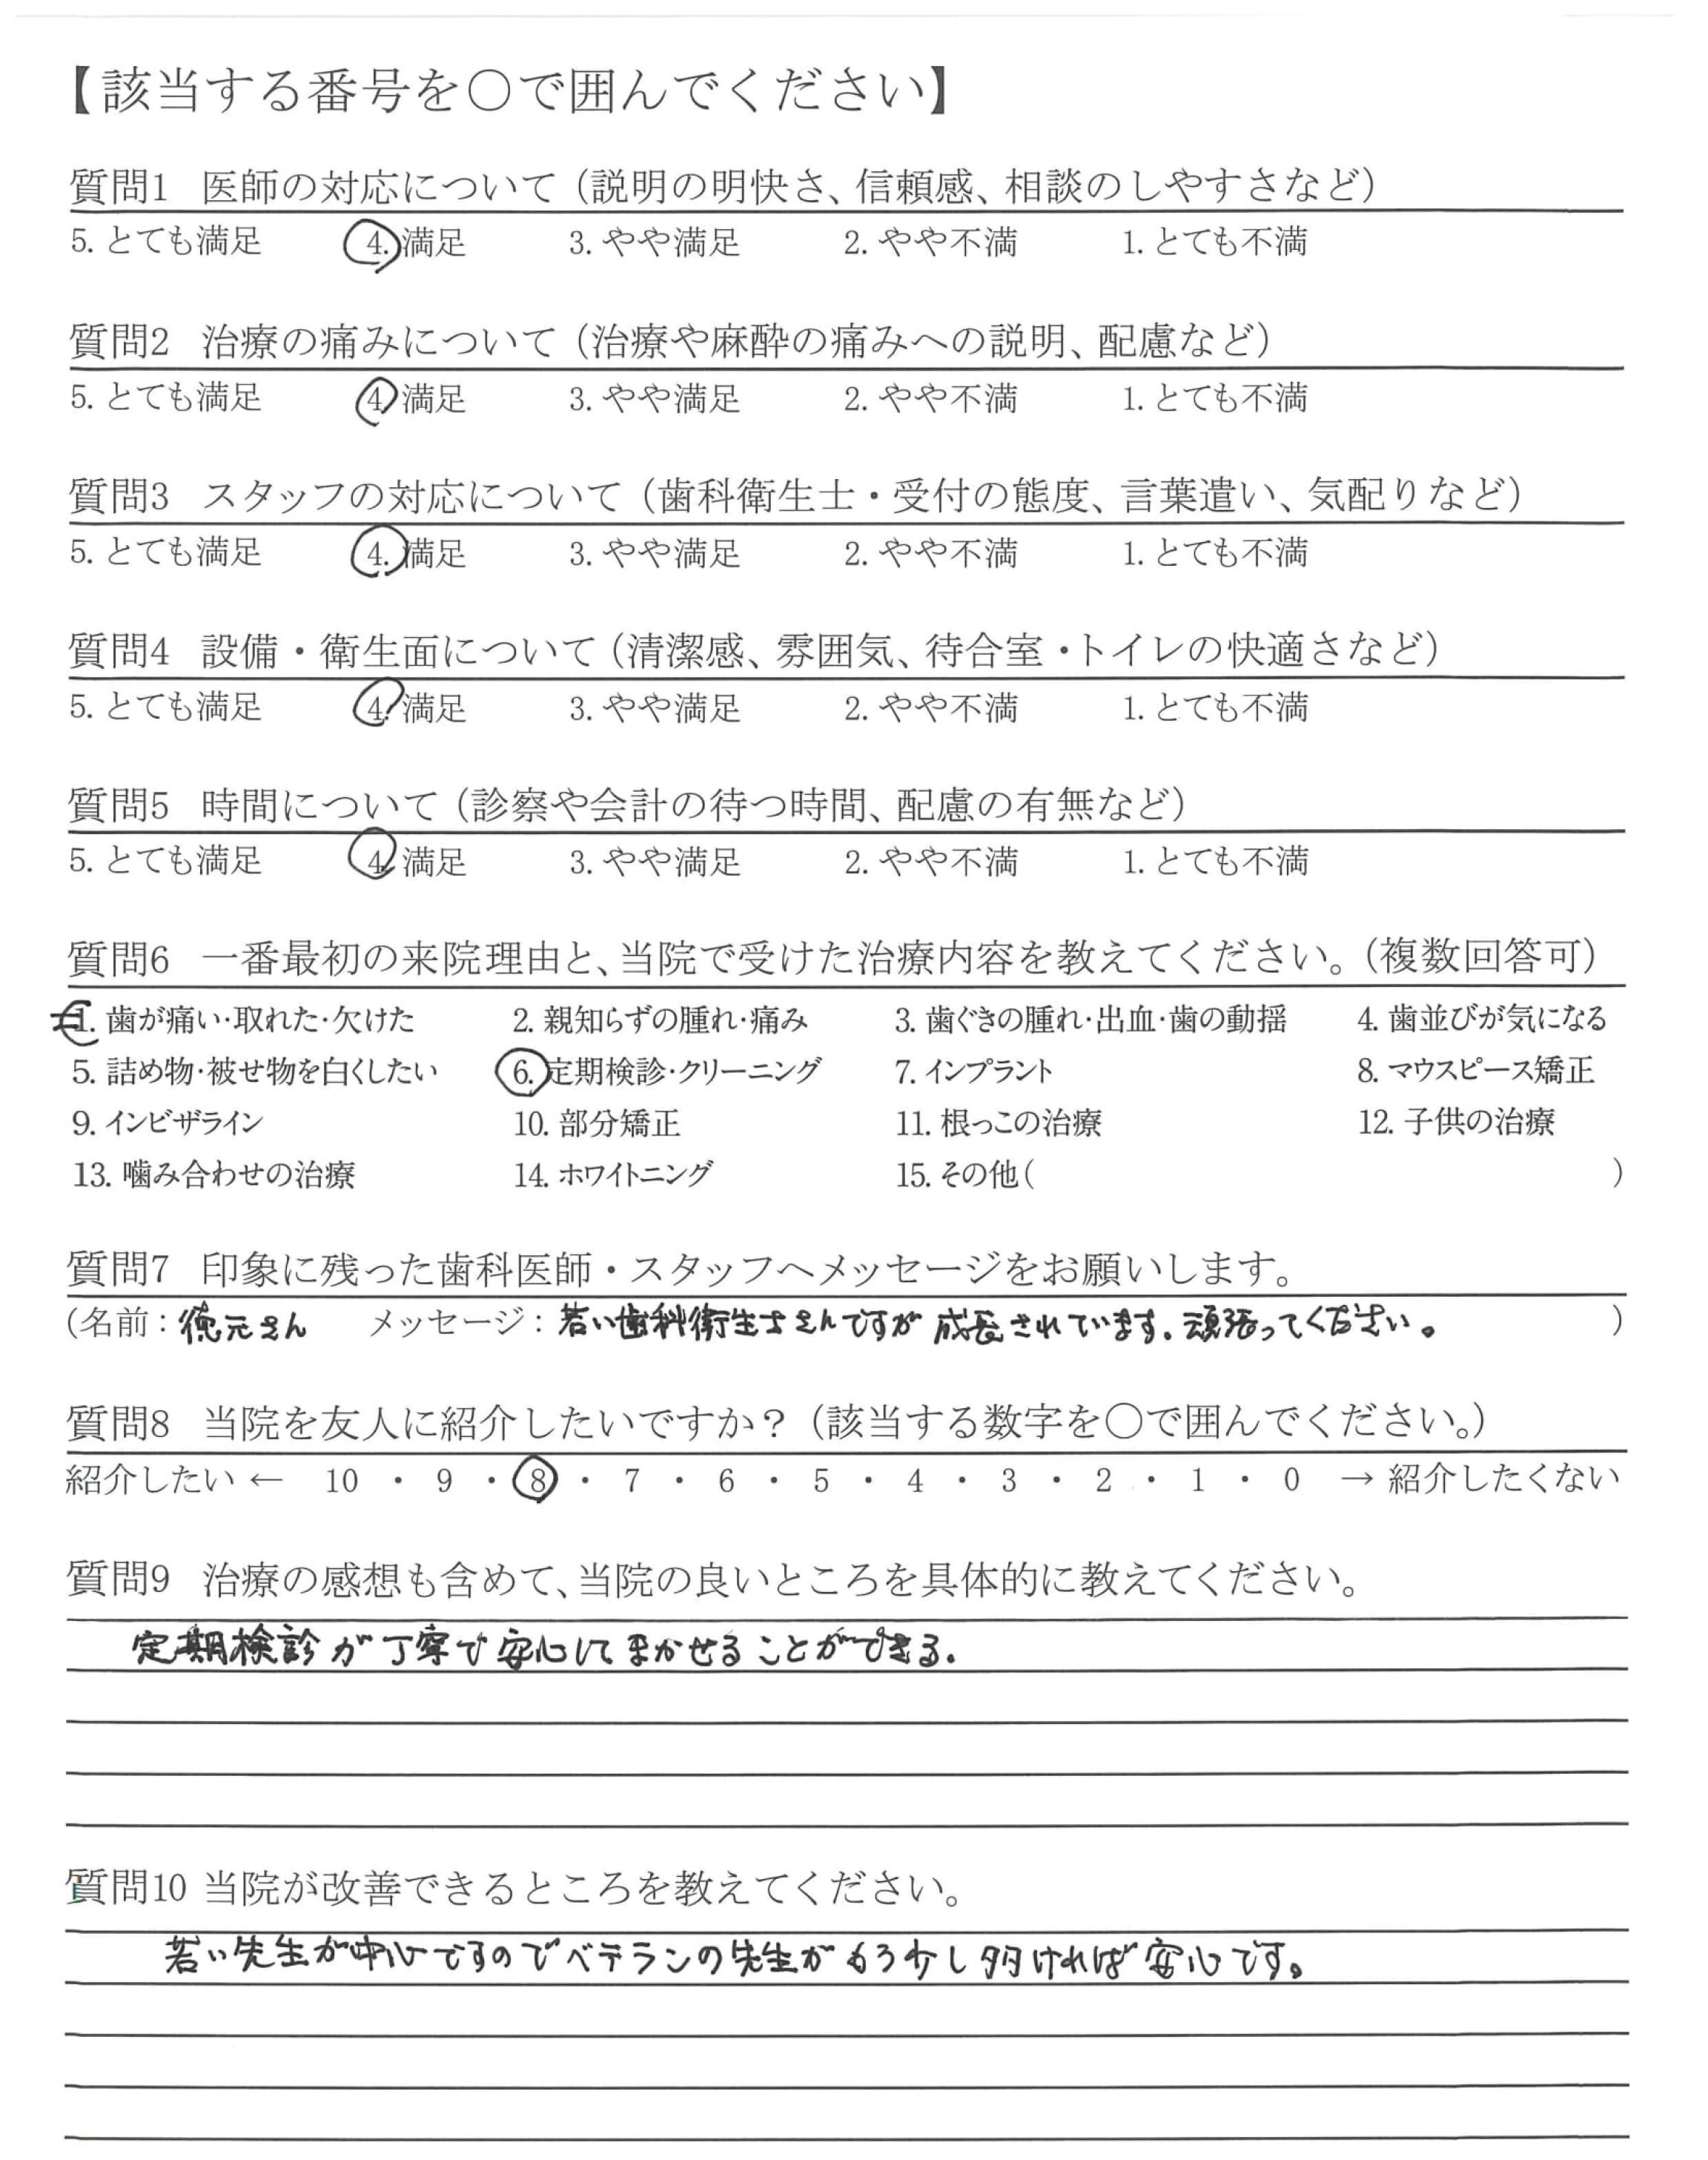 【該当する番号を○で囲んでください】
質問1 医師の対応について（説明の明快さ、信頼感、相談のしやすさなど）
5. とても満足 4. 満足 3. やや満足 2. やや不満 1. とても不満
質問2 治療の痛みについて（治療や麻酔の痛みへの説明、配慮など）
5. とても満足 4. 満足 3. やや満足 2. やや不満 1. とても不満
質問3 スタッフの対応について（歯科衛生士・受付の態度、言葉遣い、気配りなど）
5. とても満足 4. 満足 3. やや満足 2. やや不満 1. とても不満
質問4 設備・衛生面について（清潔感、雰囲気、待合室・トイレの快適さなど）
5. とても満足 4. 満足 3. やや満足 2. やや不満 1. とても不満
質問5 時間について（診察や会計の待つ時間、配慮の有無など）
5. とても満足 4. 満足 3. やや満足 2. やや不満 1. とても不満
質問6 一番最初の来院理由と、当院で受けた治療内容を教えてください。（複数回答可）
1. 歯が痛い・取れた・欠けた 2. 親知らずの腫れ・痛み 3. 歯ぐきの腫れ・出血・歯の動揺 4. 歯並びが気になる
5. 詰め物・被せ物を白くしたい 6. 定期検診・クリーニング 7. インプラント 8. マウスピース矯正
9. インビザライン 10. 部分矯正 11. 根っこの治療 12. 子供の治療
13. 噛み合わせの治療 14. ホワイトニング 15. その他（ ）
質問7 印象に残った歯科医師・スタッフへメッセージをお願いします。
（名前：徳元さん メッセージ：若い歯科衛生士さんですが成長されています。頑張ってください。 ）
質問8 当院を友人に紹介したいですか？（該当する数字を○で囲んでください。）
紹介したい ← 10 ・ 9 ・ 8 ・ 7 ・ 6 ・ 5 ・ 4 ・ 3 ・ 2 ・ 1 ・ 0 → 紹介したくない
質問9 治療の感想も含めて、当院の良いところを具体的に教えてください。
定期検診が丁寧で安心してまかせることができる.
質問10 当院が改善できるところを教えてください。
若い先生が中心ですのでベテランの先生がもう少し多ければ安心です。